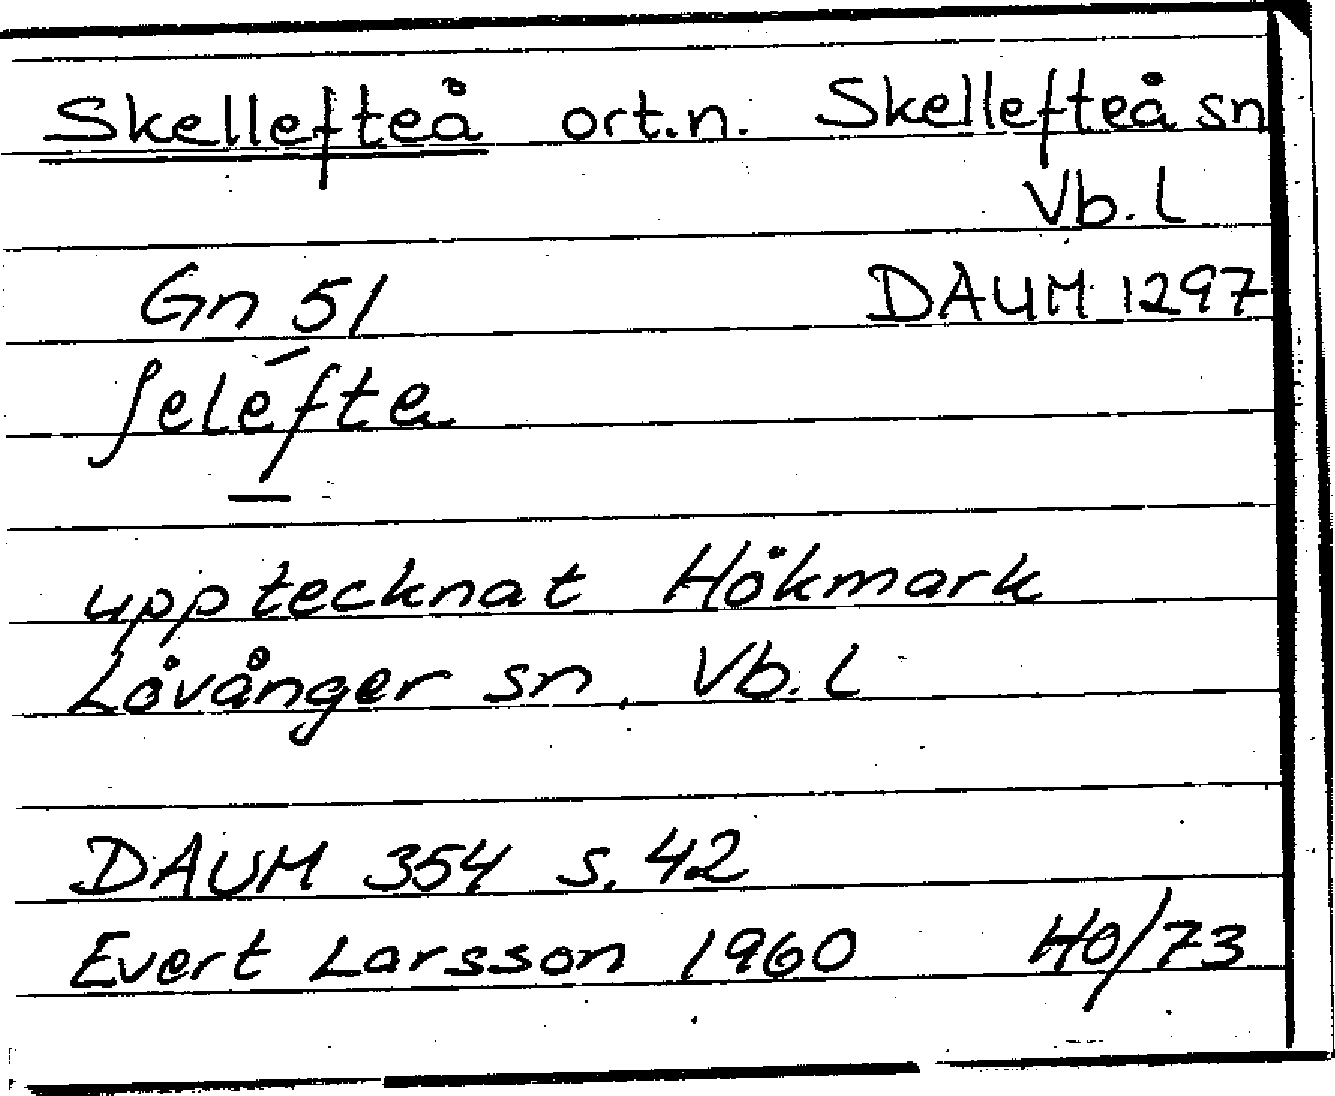 Skellefteå ort.n. Skellefteå sn
Vb. l
Gn 51 DAUM 1297
ʃeléfte
upptecknat Hökmark
Lövånger sn, Vb. l
DAUM 354 s. 42
Evert Larsson 1960 HO/73